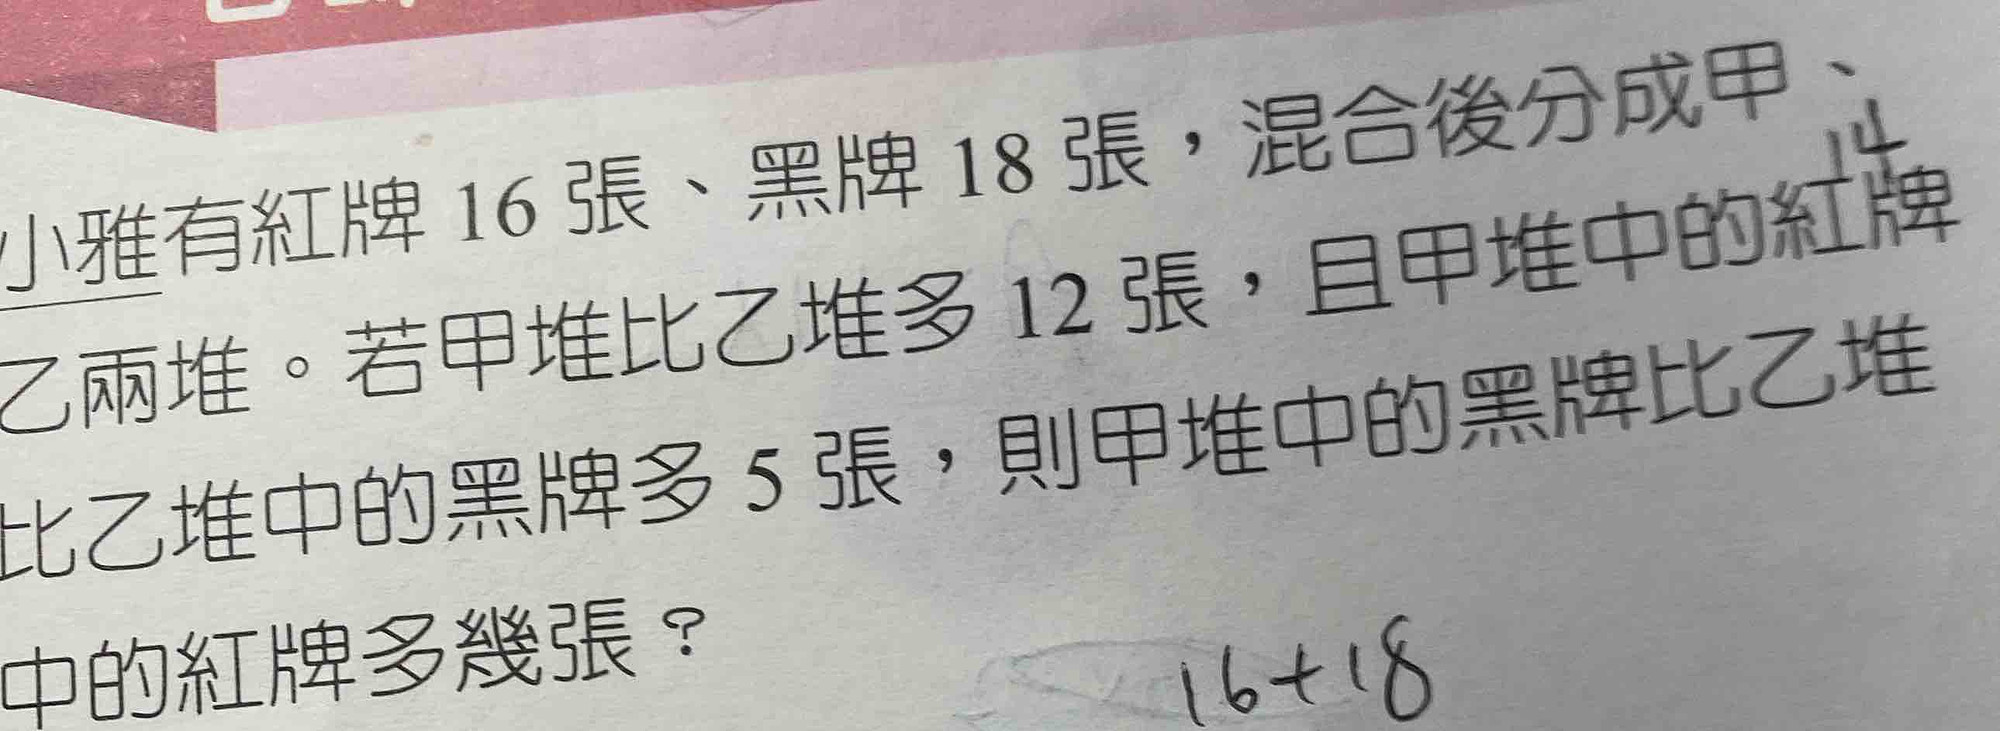 小雅有紅牌 16 張、黑牌 18 張，混合後分成甲、
14
乙兩堆。若甲堆比乙堆多 12 張，且甲堆中的紅牌
比乙堆中的黑牌多 5 張，則甲堆中的黑牌比乙堆
中的紅牌多幾張？
16+18